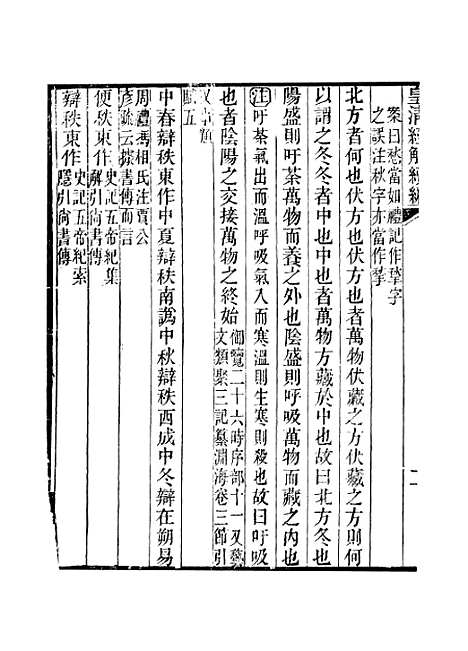 皇清經解續編
案曰愁當如禮記作揫字
之誤注秋字亦當作揫
北方者何也伏方也伏方也者萬物伏藏之方伏藏之方則何
以謂之冬冬者中也中也者萬物方藏於中也故曰北方冬也
陽盛則吁荼萬物而養之外也陰盛則呼吸萬物而藏之內也
注吁荼氣出而溫呼吸氣入而寒溫則生寒則殺也故曰吁吸
也者陰陽之交接萬物之終始御覽二十六時序部十一又藝
文類聚三記纂淵海卷三節引
又事類
賦五
中春辯秩東作中夏辯秩南譌中秋辯秩西成中冬辯在朔易
周禮馮相氏注賈公
彥疏云據書傳而言
便秩東作史記五帝紀集
解引尚書傳
辯秩東作史記五帝紀索
隱引尚書傳